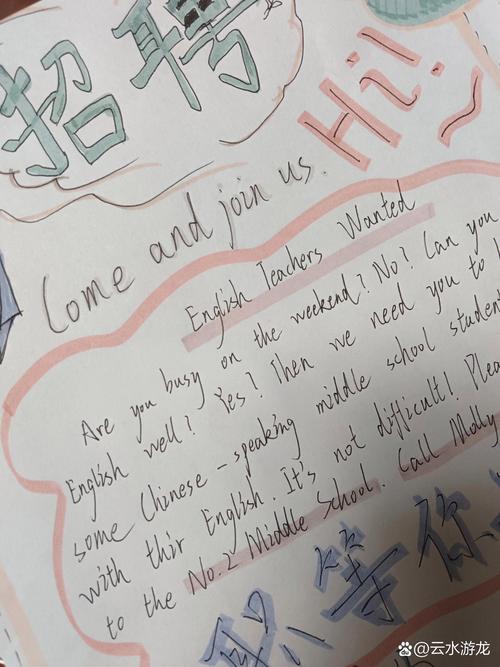 招聘
Hi!
Come and join us.
English Teachers Wanted
Are you busy on the weekend? No? Can you
English well? Yes? Then we need you to
some Chinese-speaking middle school studen
with thir English. It's not difficult! Plea
to the No.2 Middle School. Call Molly
只等你
@云水游龙